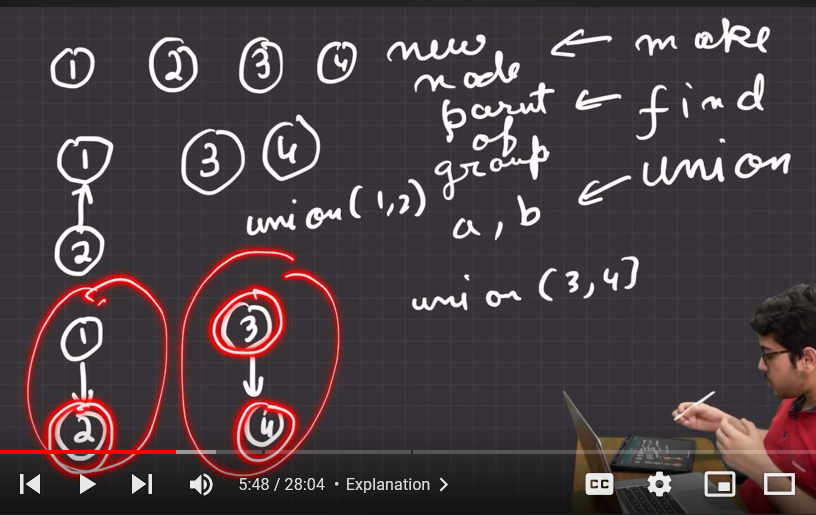 1 2 3 4 new node ← make
parent of group ← find
1 3 4
2
a, b ← union
union(1,2)
union (3,4]
1 3
2 4
5:48 / 28:04 • Explanation
CC